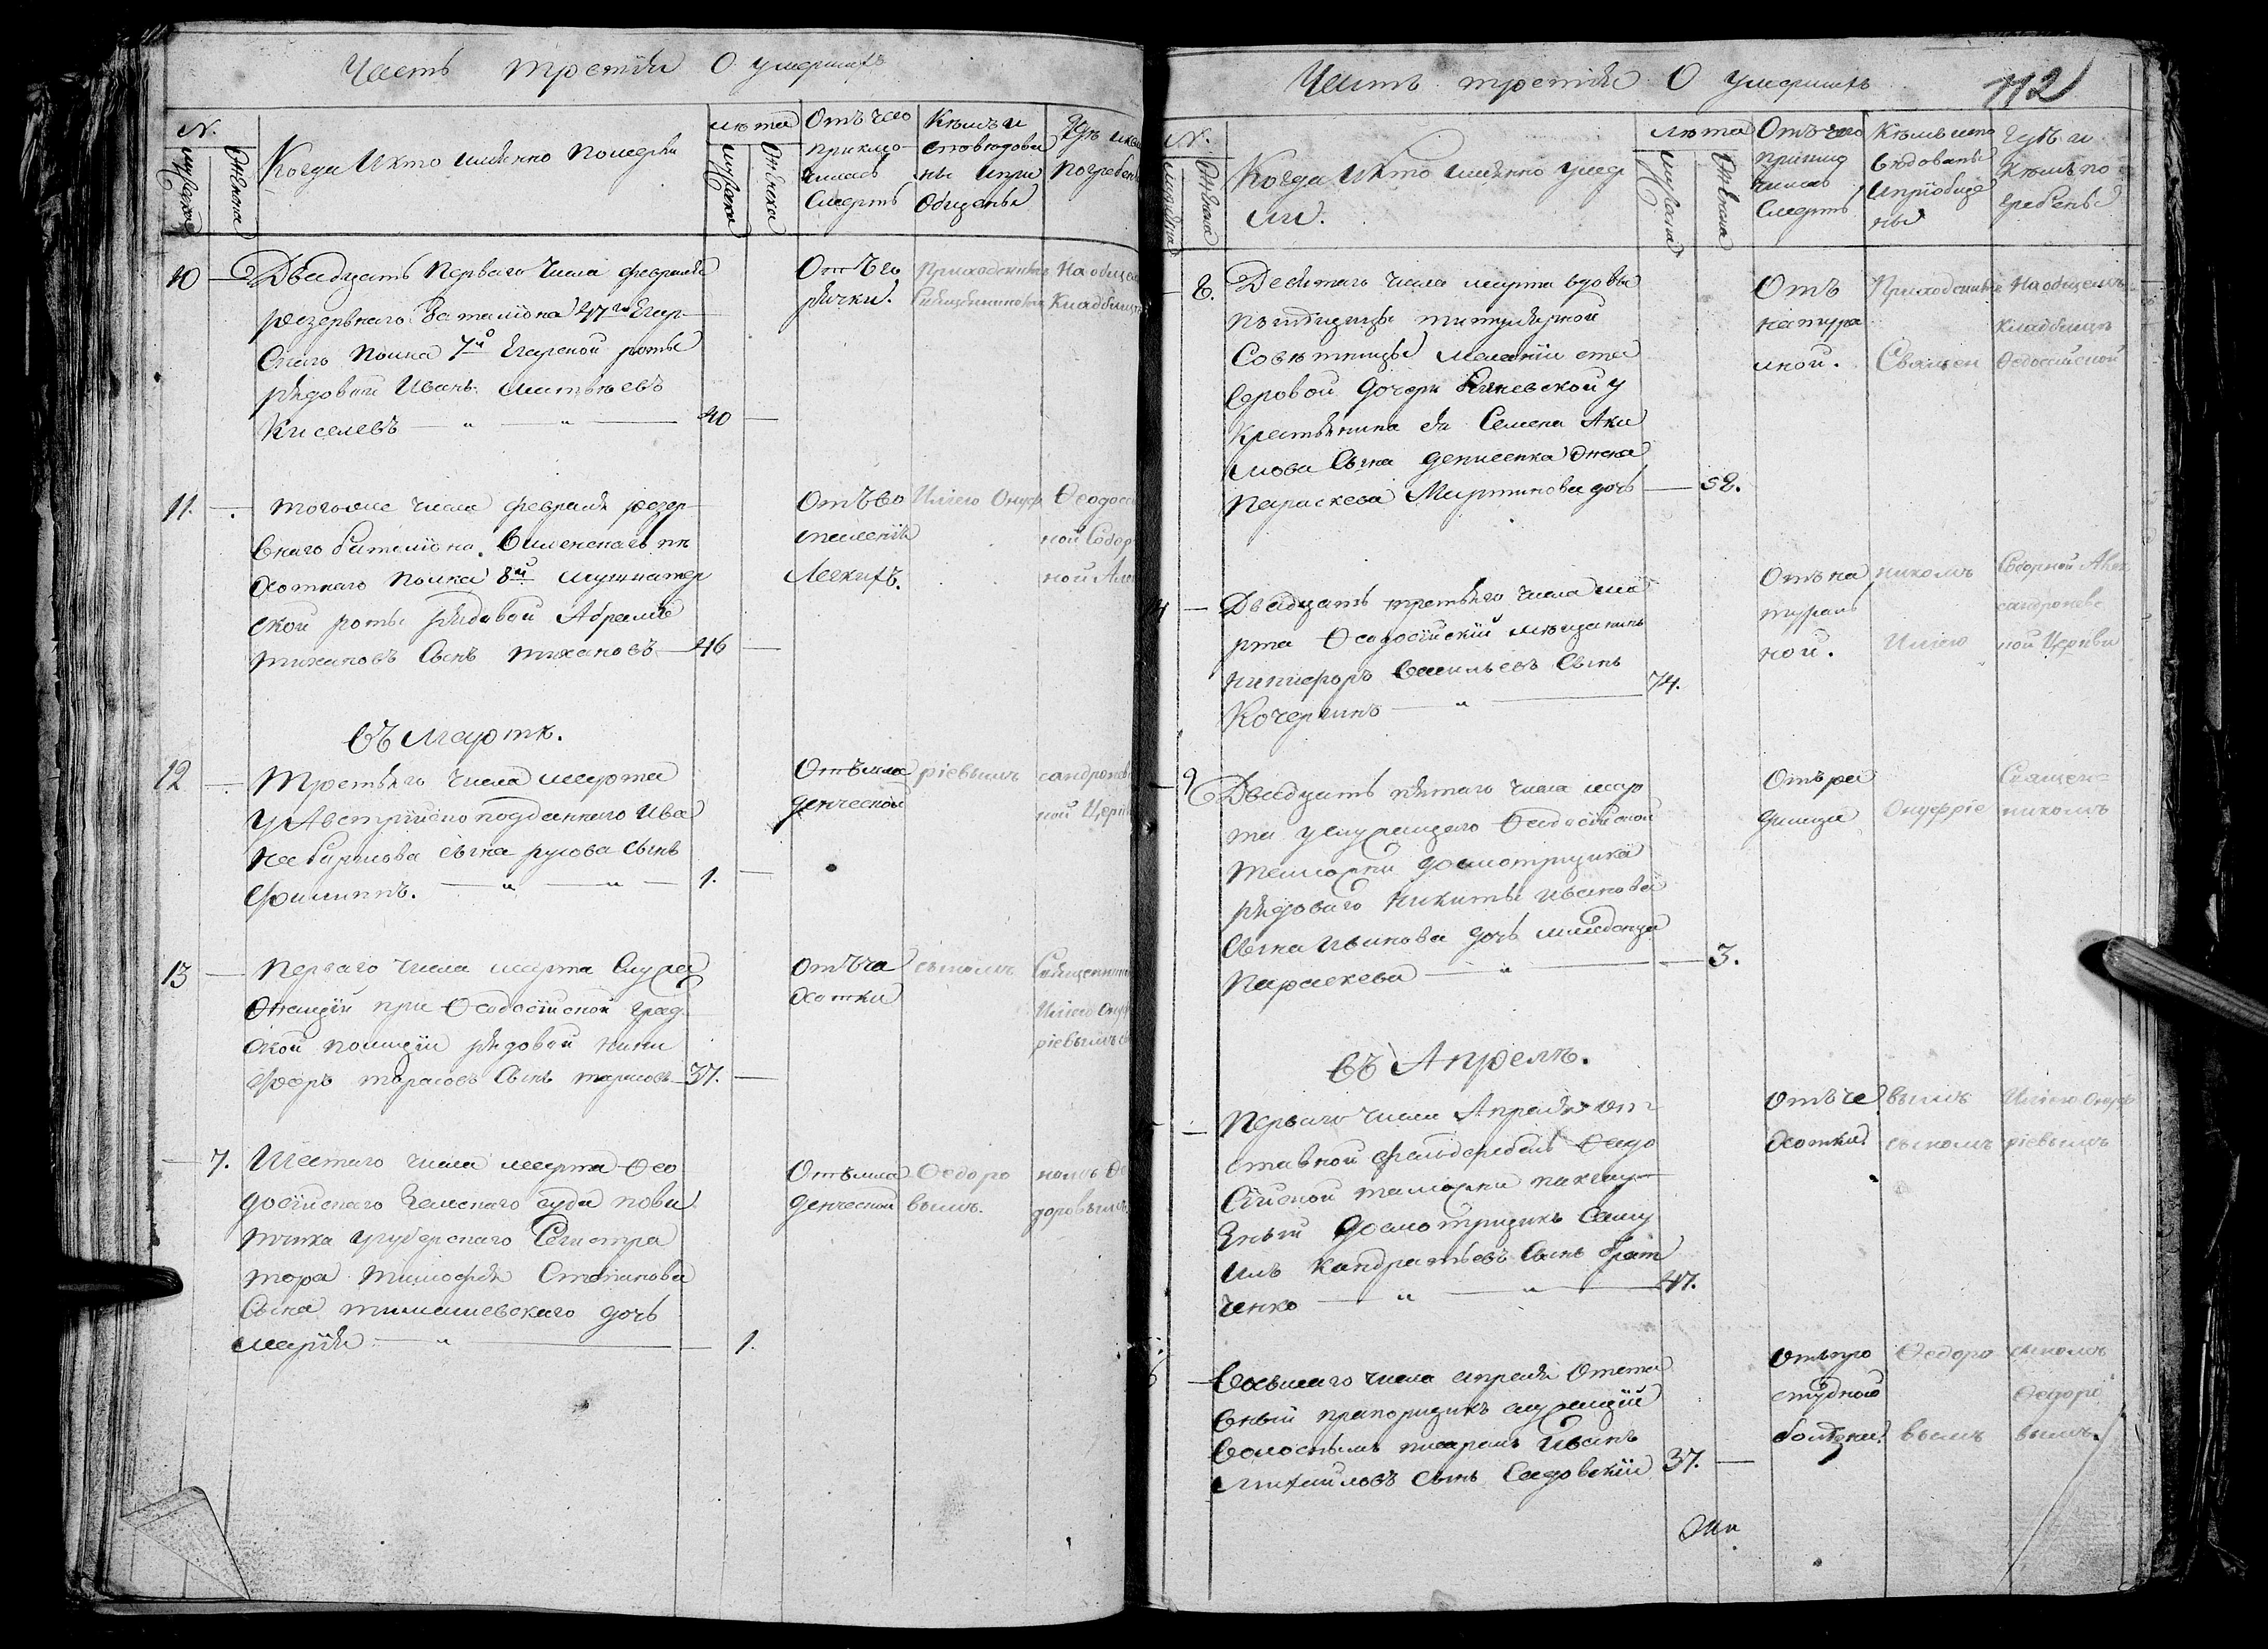 Часть третия О умершихъ
N.
мужеска
женска
Когда И кто имянно Померли
лѣта
мужеска
женска
Отъ чего
приклю-
чилась
Смерть
Кѣмъ и
сповѣдова
ны и прі
Общены
Гдѣ и кѣм
погребен
10
Двадцать Перваго Числа февраля
резервнаго баталіона 47го Егер-
Скаго Полка 7й Егерской роты
рядовой Иванъ Матвѣевъ
Киселевъ
40
Отъ го
рячки.
Приходскимъ
На общем
Кладбищѣ
11.
тогоже числа февраля резер-
внаго баталіона Виленскаго пѣ
хотнаго Полка 8й мушкатер
ской роты рядовой Абрамъ
тихановъ Сынъ тихановъ
46
Отъ во
спаленія
Легкихъ.
Иліею Онуф
Ѳеодосі
ной Собор
ной Але
Въ Мартѣ.
12
Третьяго числа марта
У Австрійско подданнаго Ива
на сына русова Сынъ
Филиппъ.
1.
Отъ мла
денческой
ріевымъ
сандроневс
ной Церк
13
Перваго числа марта Служа
жащій при Ѳеодосійской град
ской полиціи рядовой ники
форъ тарасовъ Сынъ тарасовъ
37.
Отъ ча
хотки
сыномъ
Священни
Иліею Онуф
ріевымъ с
7.
Шестаго числа марта Ѳео
досійскаго Земскаго суда пові
тчика губерскаго Регистра
тора тимофея Степанова
Сына тимашевскаго дочь
марія
1.
Отъ мла
денческой
Ѳедоро
вымъ.
номъ Ѳе
доровымъ
Часть третия О умершихъ
112
N.
женска
Когда И кто имянно умер
ли.
лѣта
мужеска
женска
Отъ чего
приклю
чилась
Смерть
Кѣмъ испо
вѣдованы
и пріобще
ны
Гдѣ и
Кѣмъ по
гребены
8.
Десятаго числа марта вдовы
титулярной
Совѣтницы Меланіи
дочери у
Крестьянина ея Семена Аки
мова Сына денисенка жена
Параскева Мартинова дочь
52.
Отъ
натура
лной.
Приходскимъ
Священ
На общемъ
кладбищѣ
Ѳедосійской
14
Двадцать третьяго числа ма
рта Ѳеодосійскій мѣщанинъ
никифоръ Васильевъ Сынъ
Кочергинъ
74.
Отъ на
турал
ной.
никомъ
Иліею
Соборной Алек
сандроневс
ной Церкви
9
Двадцать пятаго числа мар
та у служащаго Ѳеодосійской
таможни досмотрщика
рядоваго никиты иванова
Сына Иванова дочь младенца
Параскева
3.
Отъ ро
димца
Онуфріе
Священ=
никомъ
Въ Апрелѣ.
Перваго числа Апреля от
ставной фельдфебель Ѳеодо
сійской таможни пакгау-
зный досмотрщикъ Саму
илъ кандратьевъ Сынъ брат
ченко
47.
Отъ ча
хотки.
вымъ
сыномъ
Иліею Онуф
ріевымъ
Восьмаго числа апреля Отста
вный прапорщикъ служащій
Волоснымъ писаремъ Иванъ
михаиловъ сынъ Садовскій
37.
Отъ про
студной
болѣзни.
Ѳедоро
вымъ
сыномъ
Ѳедоро
вымъ.